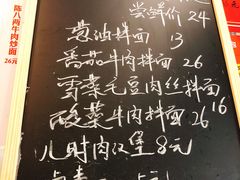 陈八两牛肉炒面
26元
尝鲜价 24
葱油拌面 13
番茄牛肉拌面 26
雪菜毛豆肉丝拌面
16
酸菜牛肉拌面 26
儿时肉汉堡 8元